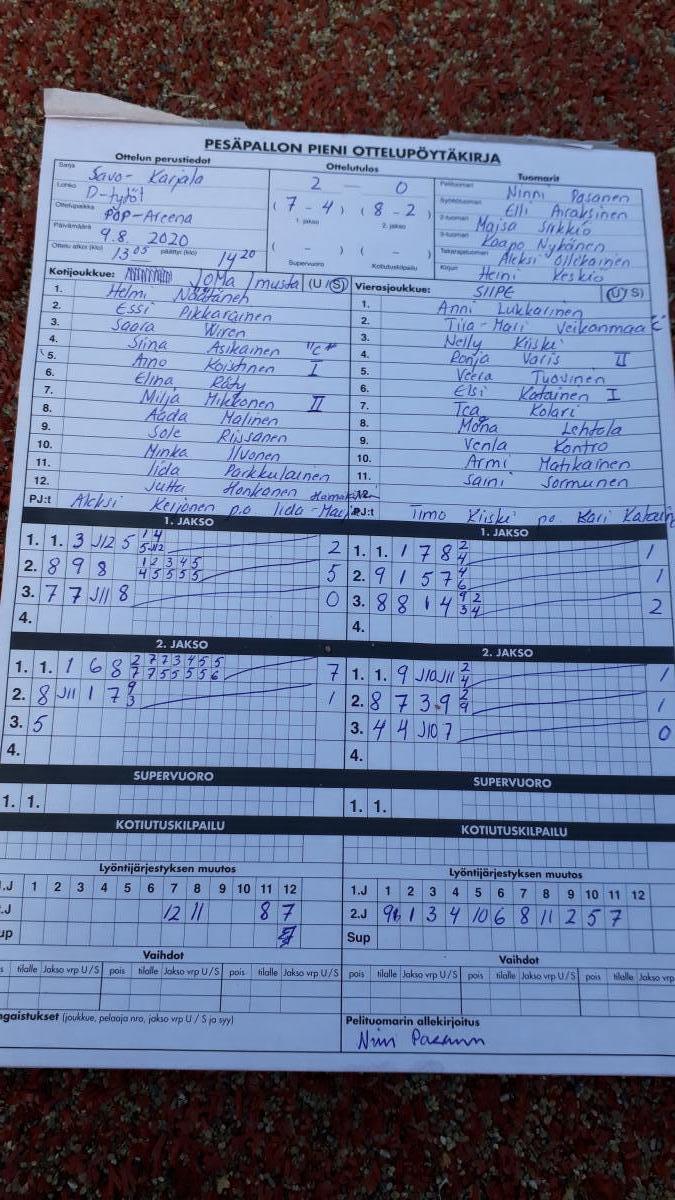 PESÄPALLON PIENI OTTELUPÖYTÄKIRJA
Ottelun perustiedot
Sarja Savo-Karjala
Lohko D-tytöt
Ottelupaikka PÖP-Areena
Päivämäärä 9.8. 2020
Ottelu alkoi (klo) 13 05 päättyi (klo) 14 20
Ottelutulos
2 — 0
( 7 - 4 ) ( 8 - 2 )
1. jakso 2. jakso
( - ) ( - )
Supervuoro Kotiutuskilpailu
Tuomarit
Pelituomari Ninni Pasanen
Syöttötuomari Elli Airaksinen
2-tuomari Maisa Siikkiö
3-tuomari Kaapo Nykänen
Takarajatuomari Aleksi Ollekainen
Kirjuri Heini Keskiö
Kotijoukkue: JoMa / musta (U / S)
1. Helmi Näätänen
2. Essi Pikkarainen
3. Saara Wiren
4. Siina Asikainen "C"
5. Aino Koistinen I
6. Elina Räty
7. Milja Mikkonen II
8. Aada Malinen
9. Sole Riissanen
10. Minka Ilvonen
11. Iida Parkkulainen
12. Jutta Honkonen
PJ:t Aleksi Keijonen p.o. Iida-Mari
Vierasjoukkue: SIIPE (U / S)
1. Anni Lukkarinen
2. Tiia-Mari Veikanmaa "C"
3. Nelly Kiiski
4. Ronja Varis II
5. Veera Tuovinen
6. Elsi Katainen I
7. Tea Kolari
8. Mona Lehtola
9. Venla Kontro
10. Armi Matikainen
11. Saini Sormunen
12.
PJ:t Timo Kiiski po. Kari Katainen
1. JAKSO
1. 1. 3 J12 5 1 4 2
5 J12
2. 8 9 8 1 2 3 4 5 5
4 5 5 5 5
3. 7 7 J11 8 0
4.
1. JAKSO
1. 1. 1 7 8 2 1
4
2. 9 1 5 7 4 1
6
3. 8 8 1 4 9 2 2
3 4
4.
2. JAKSO
1. 1. 1 6 8 2 7 7 3 4 5 5 7
7 7 5 5 5 5 6
2. 8 J11 1 7 9 1
3
3. 5
4.
2. JAKSO
1. 1. 9 J10 J11 2 1
4
2. 8 7 3 9 2 1
9
3. 4 4 J10 7 0
4.
SUPERVUORO
1. 1.
SUPERVUORO
1. 1.
KOTIUTUSKILPAILU
KOTIUTUSKILPAILU
Lyöntijärjestyksen muutos
1.J 1 2 3 4 5 6 7 8 9 10 11 12
.J 12 11 8 7
up
Lyöntijärjestyksen muutos
1.J 1 2 3 4 5 6 7 8 9 10 11 12
2.J 9 1 3 4 10 6 8 11 2 5 7
Sup
Vaihdot
s tilalle Jakso vrp U / S pois tilalle Jakso vrp U / S pois tilalle Jakso vrp U / S
Vaihdot
pois tilalle Jakso vrp U / S pois tilalle Jakso vrp U / S pois tilalle Jakso vrp
ngaistukset (joukkue, pelaaja nro, jakso vrp U / S ja syy)
Pelituomarin allekirjoitus
Ninni Pasanen